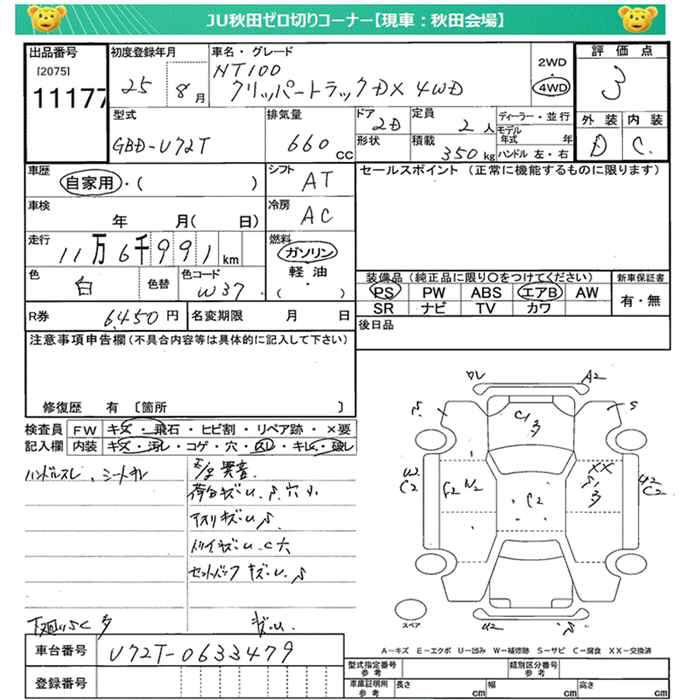 JU秋田ゼロ切りコーナー【現車：秋田会場】
出品番号
[2075]
11177
初度登録年月
25 8月
車名・グレード
NT100
クリッパートラックDX 4WD
2WD
4WD
評価点
3
外装 内装
D C
型式
GBD-U72T
排気量
660 cc
ドア
2D
形状
定員
2人
積載
350 kg
ディーラー・並行
モデル年式 年
ハンドル 左・右
車歴
自家用・( )
シフト
AT
セールスポイント (正常に機能するものに限ります)
車検
年 月( 日)
冷房
AC
走行
11万6千991km
燃料
ガソリン
軽油
・( )
色
白
色替
色コード
W37
装備品 (純正品に限り○をつけてください)
PS PW ABS エアB AW
SR ナビ TV カワ
新車保証書
有・無
R券
6,450円
名変期限 月 日
後日品
注意事項申告欄(不具合内容等は具体的に記入して下さい)
修復歴 有 〔箇所 〕
検査員記入欄
FW キズ・飛石・ヒビ割・リペア跡・×要
内装 キズ・汚レ・コゲ・穴・スレ・キレ・破レ
ハンドルスレ、シートキレ
異音
荷台キズ・U、S、穴小
アオリキズ・U、S
トリイキズ・U、C大
セットバック キズ・U、S
下廻りSC多
キズ・U
A2
C1
3
S
S
W2
C2
E2
C2
XX
S
3
U2
C2
U2
スペア
A－キズ E－エクボ U－凹み W－補修跡 S－サビ C－腐食 XX－交換済
車台番号
U72T-0633479
登録番号
型式指定番号
参考
類別区分番号
参考
車庫証明用
参考
長さ cm
幅 cm
高さ cm